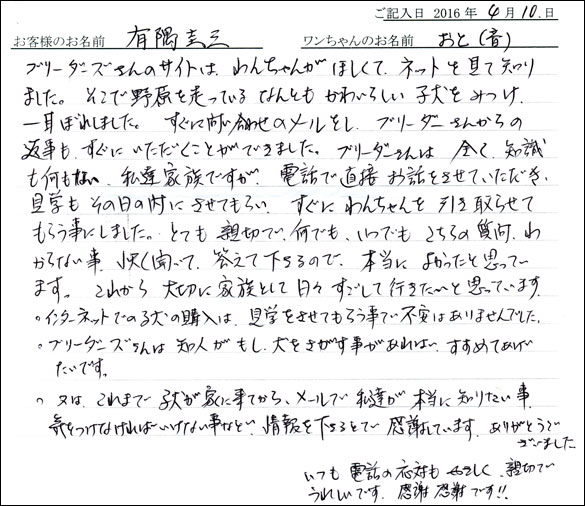 ご記入日 2016年 4月 10.日
お客様のお名前 有隅圭三 ワンちゃんのお名前 おと(音)
ブリーダーズさんのサイトは、わんちゃんがほしくて、ネットを見て知り
ました。そこで野原を走っているなんともかわいらしい子犬をみつけ、
一目ぼれしました。すぐに問い合わせのメールをし、ブリーダーさんからの
返事も、すぐにいただくことができました。ブリーダーさんは 全く、知識
も何もない、私達家族ですが、電話で直接お話をさせていただき、
見学もその日の内にさせてもらい、すぐにわんちゃんを引き取らせて
もらう事にしました。とても親切で、何でも、いつでもこちらの質問、わ
からない事、快く聞いて、答えて下さるので、本当によかったと思ってい
ます。これから大切に家族として日々すごして行きたいと思っています。
○インターネットでの子犬の購入は、見学をさせてもらう事で不安はありませんでした。
○ブリーダーズさんは知人がもし、犬をさがす事があれば、すすめてあげ
たいです。
○又は、これまで子犬が家に来てから、メールで私達が本当に知りたい事、
気をつけなければいけない事など、情報を下さるとで感謝しています。ありがとうご
ざいました
いつも電話の応対もやさしく、親切で
うれしいです。感謝感謝です!!